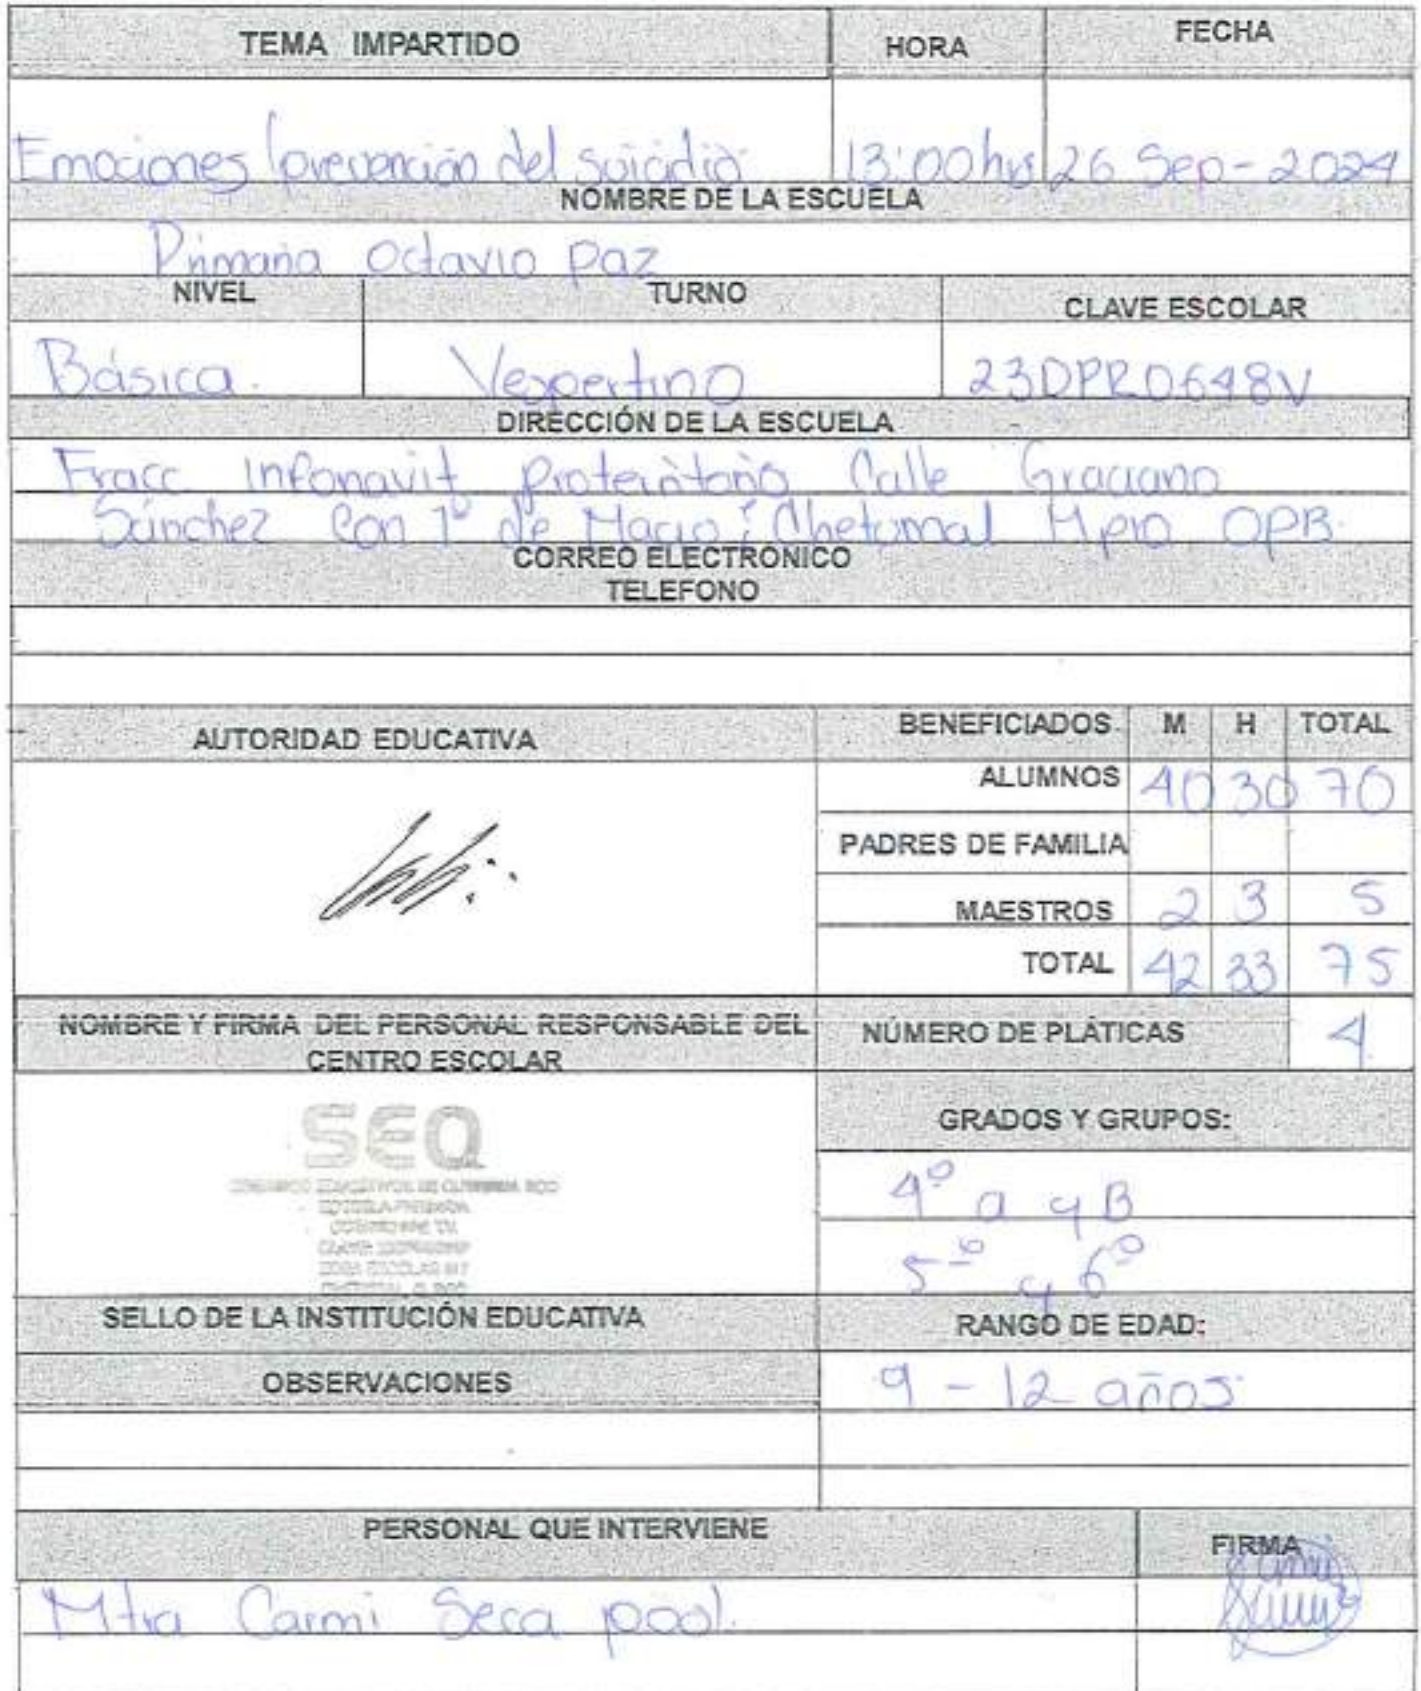 TEMA IMPARTIDO HORA FECHA
Emociones (prevención del suicidio. 13:00 hrs 26 Sep-2024
NOMBRE DE LA ESCUELA
Primaria Octavio paz
NIVEL TURNO CLAVE ESCOLAR
Básica. Vespertino 23DPR0648V
DIRECCIÓN DE LA ESCUELA
Fracc Infonavit Calle Graciano
Sánchez Con 1º de Mayo; Chetumal Mpio OPB.
CORREO ELECTRÓNICO
TELEFONO
AUTORIDAD EDUCATIVA BENEFICIADOS. M H TOTAL
ALUMNOS 40 30 70
PADRES DE FAMILIA
MAESTROS 2 3 5
TOTAL 42 33 75
NOMBRE Y FIRMA DEL PERSONAL RESPONSABLE DEL
CENTRO ESCOLAR
NÚMERO DE PLÁTICAS 4
SEQ
GRADOS Y GRUPOS:
4º a y B
5º y 6º
SELLO DE LA INSTITUCIÓN EDUCATIVA RANGO DE EDAD:
OBSERVACIONES 9 - 12 años.
PERSONAL QUE INTERVIENE FIRMA
Mtra Carmi Seca pool.